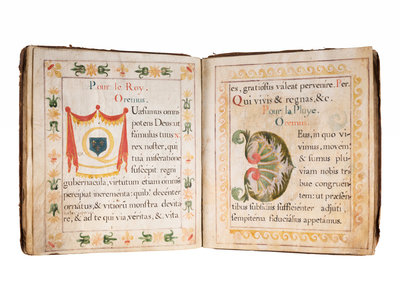 Pour le Roy.
Oremus.
Uæsumus omni
potens Deus ut
famulus tuus
rex noster, qui
tua miseratione
suscepit regni
gubernacula, virtutum etiam omnium
percipiat incrementa: quib, decenter
ornatus, & vitiorũ monstra devita
re, & ad te qui via, veritas, & vita
es, gratiosus valeat pervenire. Per
Qui vivis & regnas, &c.
Pour la Pluye.
Oremus.
Eus, in quo vi
vimus, movem
& sumus plu
viam nobis tri
bue congruen
tem: ut præsen
tibus subsidiis sufficienter adjuti
sempiterna fiducialius appetamus.